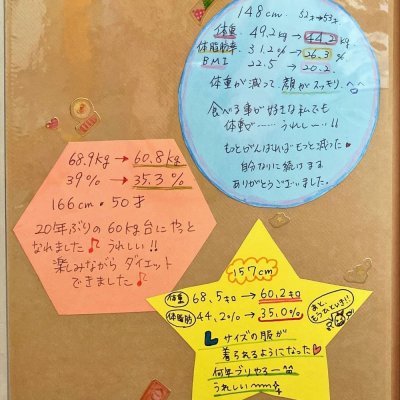 148cm 52才→53才
体重 49.2kg → 44.2kg
体脂肪率 31.2% → 26.3%
BMI 22.5 → 20.2
体重が減って、顔がスッキリ
食べる事が好きな私でも
体重が……うれしー!!
もとがんばればもっと減った
自分なりに続けます
ありがとうございました。
68.9kg → 60.8kg
39% → 35.3%
166cm・50才
20年ぶりの60kg台にやっと
なれました♪うれしい!!
楽しみながらダイエット
できました♪
157cm
体重 68.5キロ → 60.2キロ
体脂肪 44.2% → 35.0%
あと、もうひといき!!
Lサイズの服が
着られるようになった♥
何年ブリかるー^^
うれしいーーー